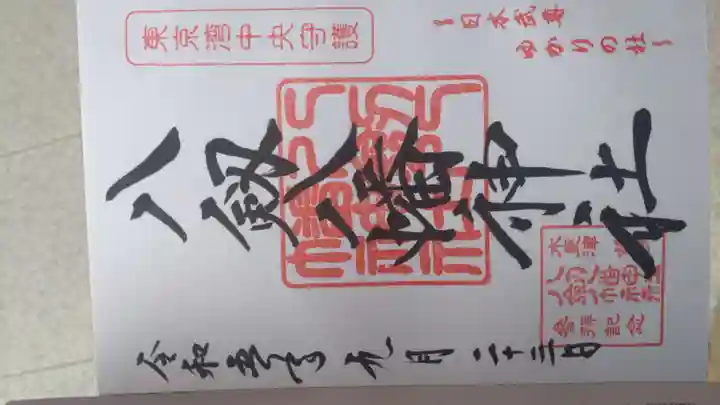 東京湾中央守護
~日本武尊
ゆかりの社~
八剱八幡神社
八剱八幡神社
木更津
八剱八幡神社
参拝記念
令和五年九月二十三日